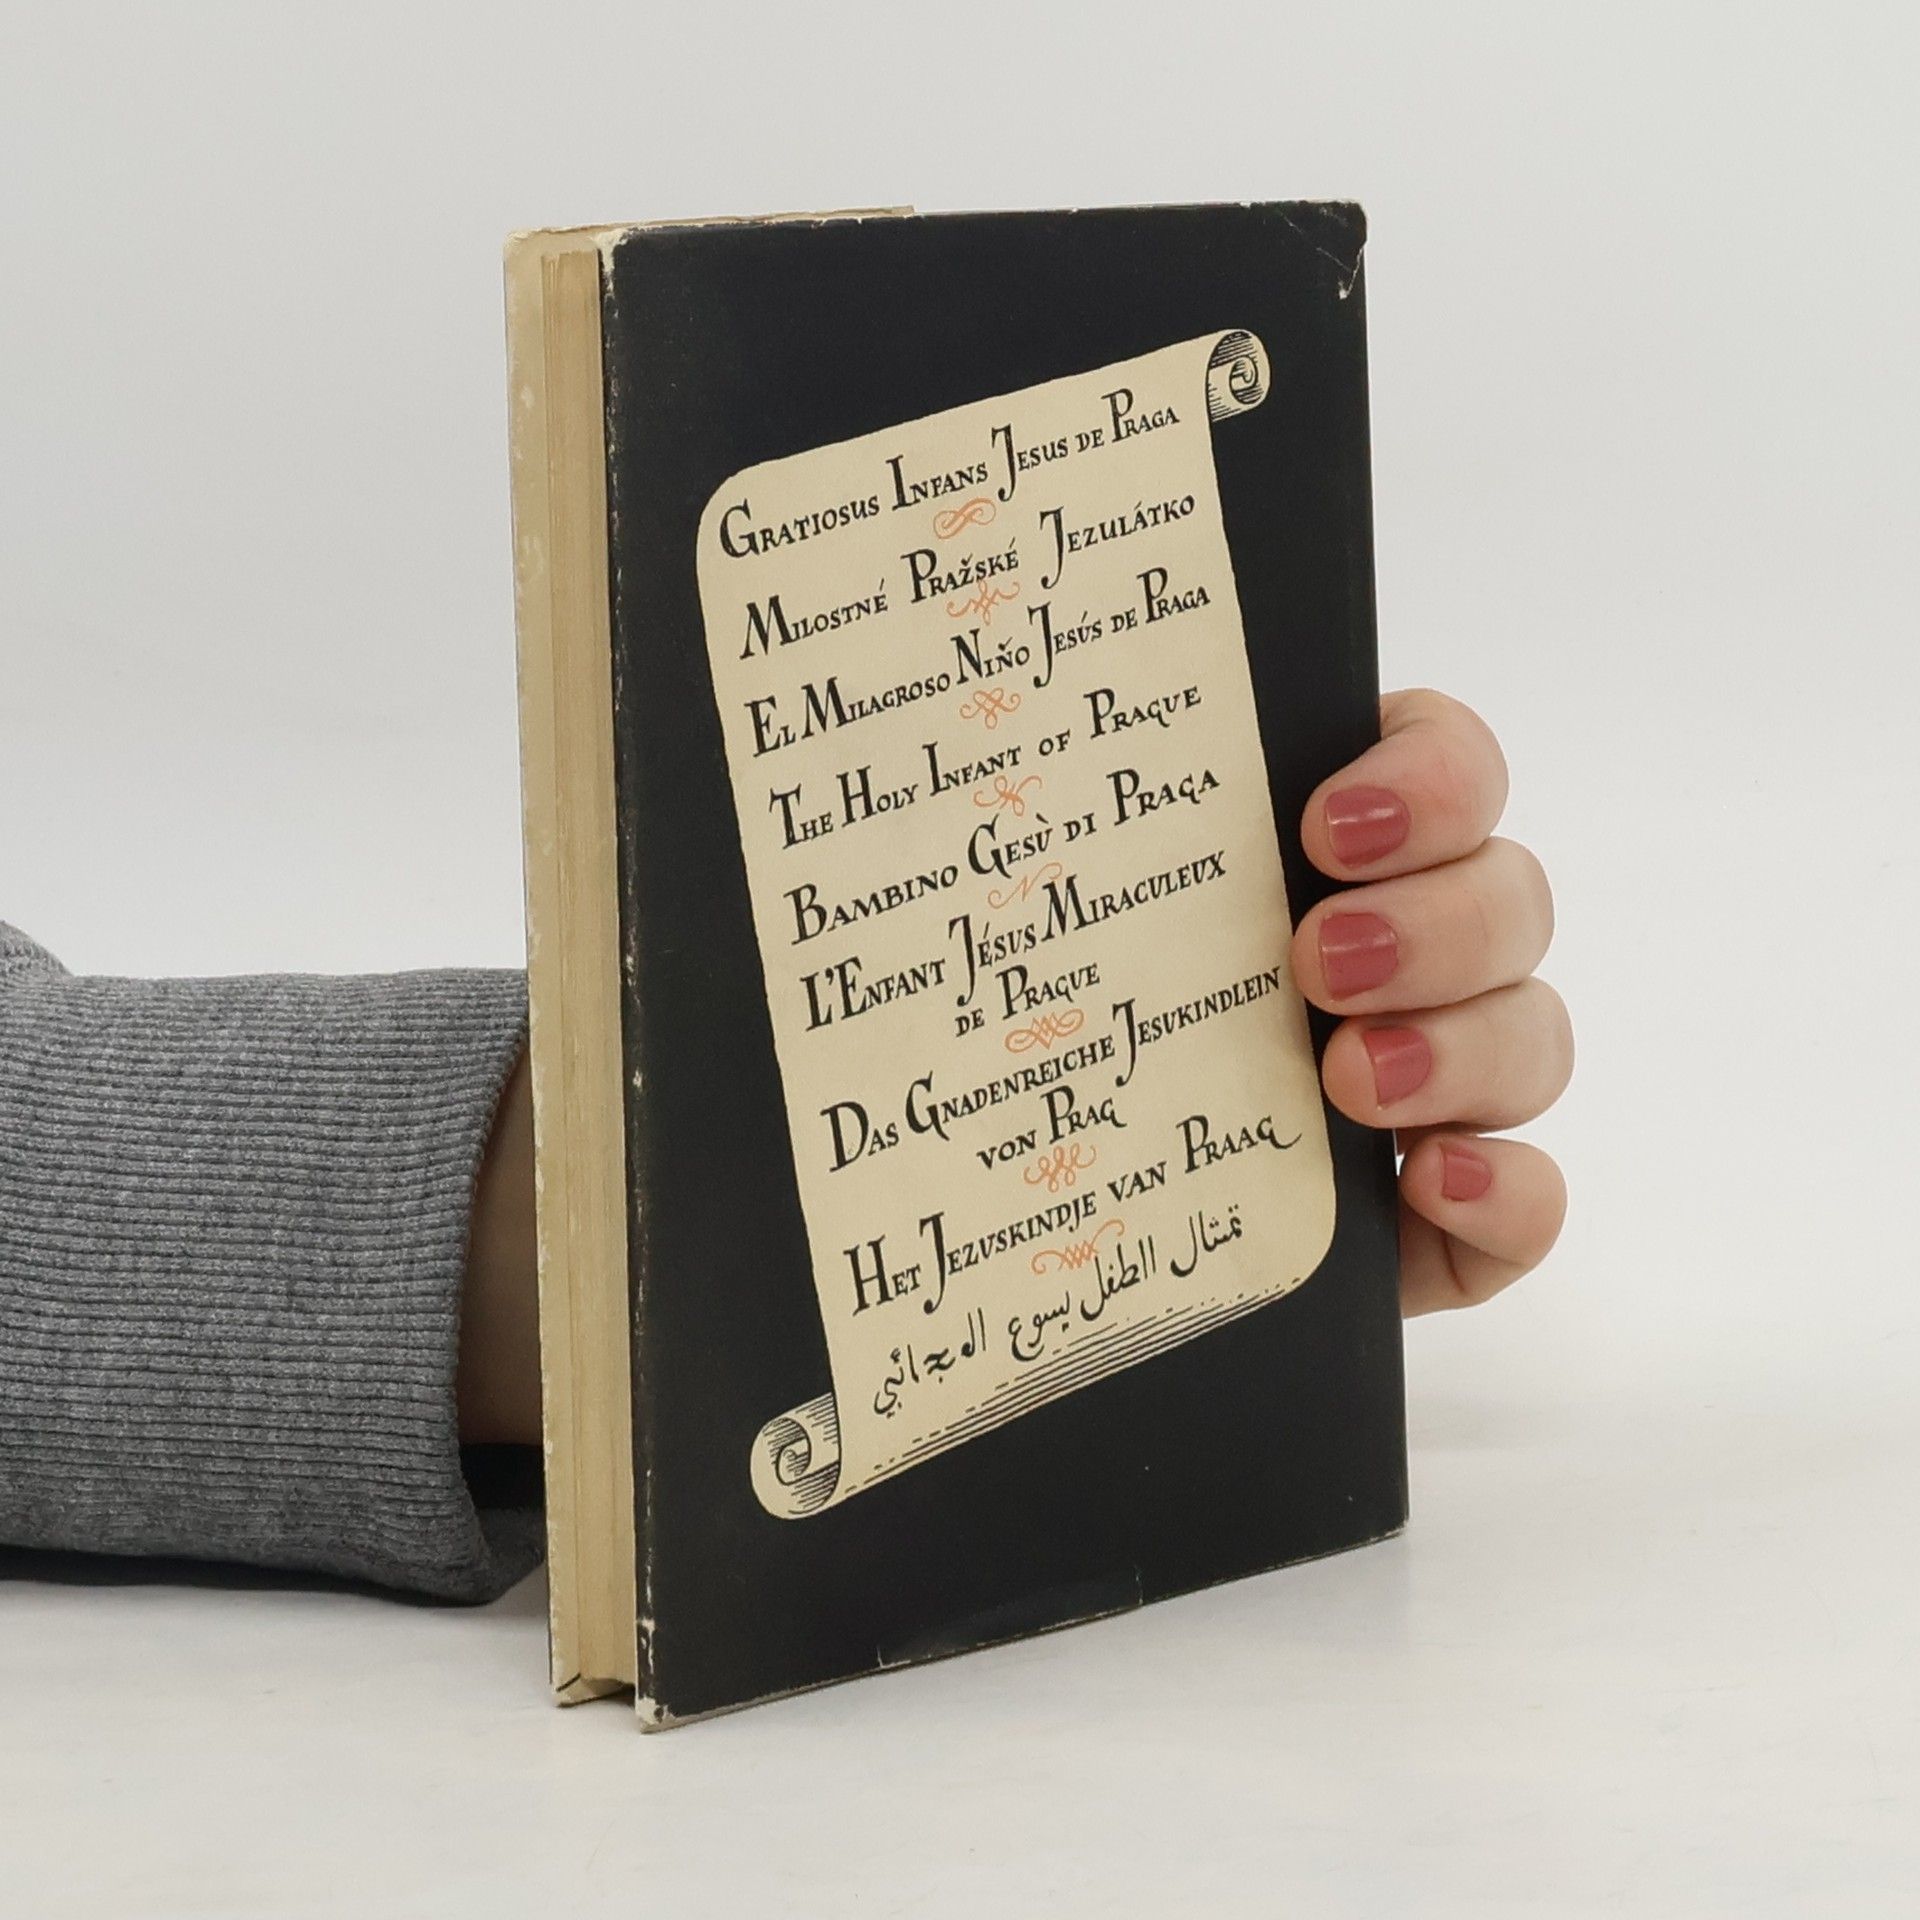 GRATIOSUS INFANS JESUS DE PRAGA
MILOSTNÉ PRAŽSKÉ JEZULÁTKO
EL MILAGROSO NIÑO JESÚS DE PRAGA
THE HOLY INFANT OF PRAGUE
BAMBINO GESÙ DI PRAGA
L'ENFANT JÉSUS MIRACULEUX
DE PRAGUE
DAS GNADENREICHE JESUKINDLEIN
VON PRAG
HET JEZUSKINDJE VAN PRAAG
تمثال الطفل يسوع العجائبي